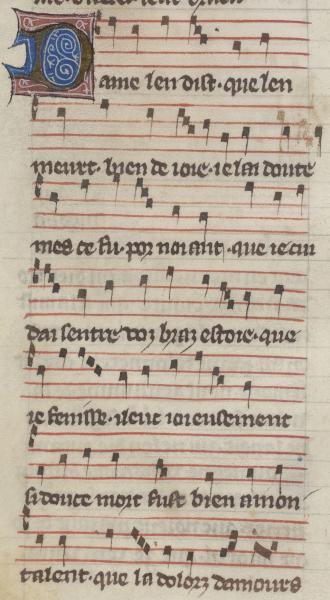 Dame len dist · que len
meurt · bien de ioie · ie lai doute
mes ce fu · por noiant · que ie cui
dai sentre voz braz estoie · que
ie fenisse · ileuc ioieusement
si douce mort fust bien a mon
talent · que la dolorz damours